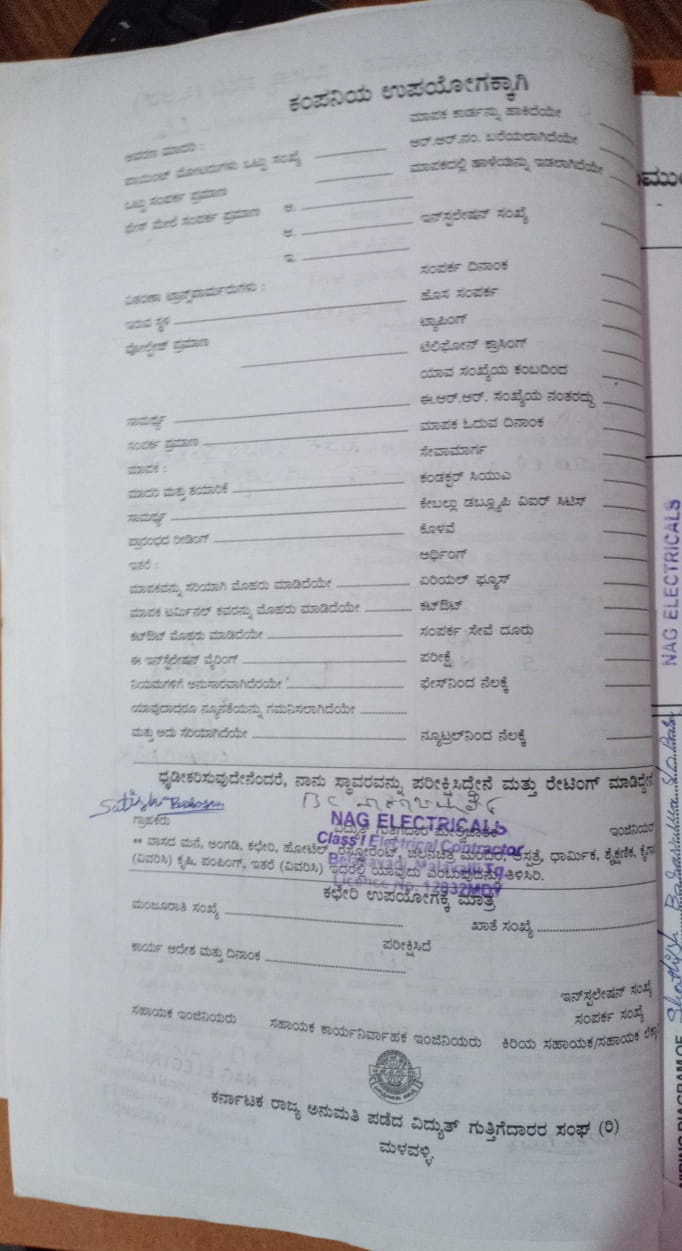 ಕಂಪನಿಯ ಉಪಯೋಗಕ್ಕಾಗಿ
ಆವರಣ ಮಾದರಿ : ಮಾಪಕ ಕಾರ್ಡನ್ನು ಹಾಕಿದೆಯೇ
ಪಾಯಿಂಟ್ ಮೋಟರುಗಳು ಒಟ್ಟು ಸಂಖ್ಯೆ ಆರ್.ಆರ್.ನಂ. ಬರೆಯಲಾಗಿದೆಯೇ
ಒಟ್ಟು ಸಂಪರ್ಕ ಪ್ರಮಾಣ ಮಾಪಕದಲ್ಲಿ ಹಾಳೆಯನ್ನು ಇಡಲಾಗಿದೆಯೇ
ಫೇಸ್ ಮೇಲೆ ಸಂಪರ್ಕ ಪ್ರಮಾಣ ಅ.
ಆ. ಇನ್‌ಸ್ಟಲೇಷನ್ ಸಂಖ್ಯೆ
ಇ.
ವಿತರಣಾ ಟ್ರಾನ್ಸ್‌ಫಾರ್ಮರುಗಳು : ಸಂಪರ್ಕ ದಿನಾಂಕ
ಇರುವ ಸ್ಥಳ ಹೊಸ ಸಂಪರ್ಕ
ವೋಲ್ಟೇಜ್ ಪ್ರಮಾಣ ಟ್ಯಾಪಿಂಗ್
ಟೆಲಿಫೋನ್ ಕ್ರಾಸಿಂಗ್
ಯಾವ ಸಂಖ್ಯೆಯ ಕಂಬದಿಂದ
ಸಾಮರ್ಥ್ಯ ಈ.ಆರ್.ಆರ್. ಸಂಖ್ಯೆಯ ನಂತರದ್ದು
ಸಂಪರ್ಕ ಪ್ರಮಾಣ ಮಾಪಕ ಓದುವ ದಿನಾಂಕ
ಮಾಪಕ : ಸೇವಾಮಾರ್ಗ
ಮಾದರಿ ಮತ್ತು ತಯಾರಿಕೆ ಕಂಡಕ್ಟರ್ ಸಿಯುಎ
ಸಾಮರ್ಥ್ಯ ಕೇಬಲ್ಲು ಡಬ್ಲ್ಯೂಪಿ ವಿಐಆರ್ ಸಿಟಿಎಸ್
ಪ್ರಾರಂಭದ ರೀಡಿಂಗ್ ಕೊಳವೆ
ಇತರೆ : ಅರ್ಥಿಂಗ್
ಮಾಪಕವನ್ನು ಸರಿಯಾಗಿ ಮೊಹರು ಮಾಡಿದೆಯೇ ಏರಿಯಲ್ ಫ್ಯೂಸ್
ಮಾಪಕ ಟರ್ಮಿನಲ್ ಕವರನ್ನು ಮೊಹರು ಮಾಡಿದೆಯೇ ಕಟ್‌ಔಟ್
ಕಟ್‌ಔಟ್ ಮೊಹರು ಮಾಡಿದೆಯೇ ಸಂಪರ್ಕ ಸೇವೆ ದೂರು
ಈ ಇನ್‌ಸ್ಟಲೇಷನ್ ವೈರಿಂಗ್ ಪರೀಕ್ಷೆ
ನಿಯಮಗಳಿಗೆ ಅನುಸಾರವಾಗಿದೆರಯೇ ಫೇಸ್‌ನಿಂದ ನೆಲಕ್ಕೆ
ಯಾವುದಾದರೂ ನ್ಯೂನತೆಯನ್ನು ಗಮನಿಸಲಾಗಿದೆಯೇ
ಮತ್ತು ಅದು ಸರಿಯಾಗಿದೆಯೇ ನ್ಯೂಟ್ರಲ್‌ನಿಂದ ನೆಲಕ್ಕೆ
ಧೃಡೀಕರಿಸುವುದೇನೆಂದರೆ, ನಾನು ಸ್ಥಾವರವನ್ನು ಪರೀಕ್ಷಿಸಿದ್ದೇನೆ ಮತ್ತು ರೇಟಿಂಗ್ ಮಾಡಿದ್ದೇನೆ
NAG ELECTRICALS
ಗ್ರಾಹಕರು ವಿದ್ಯುತ್ ಗುತ್ತಿಗೆದಾರ ಮೇಲ್ವಿಚಾರಕ ಇಂಜಿನಿಯರ್
Class-I Electrical Contractor
** ವಾಸದ ಮನೆ, ಅಂಗಡಿ, ಕಛೇರಿ, ಹೋಟೆಲ್, ರೆಸ್ಟೋರೆಂಟ್, ಚಲನಚಿತ್ರ ಮಂದಿರ, ಆಸ್ಪತ್ರೆ, ಧಾರ್ಮಿಕ, ಶೈಕ್ಷಣಿಕ, ಕೈಗಾ
(ವಿವರಿಸಿ) ಕೃಷಿ, ಪಂಪಿಂಗ್, ಇತರೆ (ವಿವರಿಸಿ) ಇದರಲ್ಲಿ ಯಾವುದು ಎಂಬುವುದನ್ನು ತಿಳಿಸಿರಿ.
ಕಛೇರಿ ಉಪಯೋಗಕ್ಕೆ ಮಾತ್ರ
ಮಂಜೂರಾತಿ ಸಂಖ್ಯೆ ಖಾತೆ ಸಂಖ್ಯೆ
ಕಾರ್ಯ ಆದೇಶ ಮತ್ತು ದಿನಾಂಕ ಪರೀಕ್ಷಿಸಿದೆ
ಇನ್‌ಸ್ಟಲೇಷನ್ ಸಂಖ್ಯೆ
ಸಂಪರ್ಕ ಸಂಖ್ಯೆ
ಸಹಾಯಕ ಇಂಜಿನಿಯರು ಸಹಾಯಕ ಕಾರ್ಯನಿರ್ವಾಹಕ ಇಂಜಿನಿಯರು ಕಿರಿಯ ಸಹಾಯಕ/ಸಹಾಯಕ ಲೆಕ್ಕಾ
ಕರ್ನಾಟಕ ರಾಜ್ಯ ಅನುಮತಿ ಪಡೆದ ವಿದ್ಯುತ್ ಗುತ್ತಿಗೆದಾರರ ಸಂಘ (ರಿ)
ಮಳವಳ್ಳಿ.
NAG ELECTRICALS
WIRING DIAGRAM OF